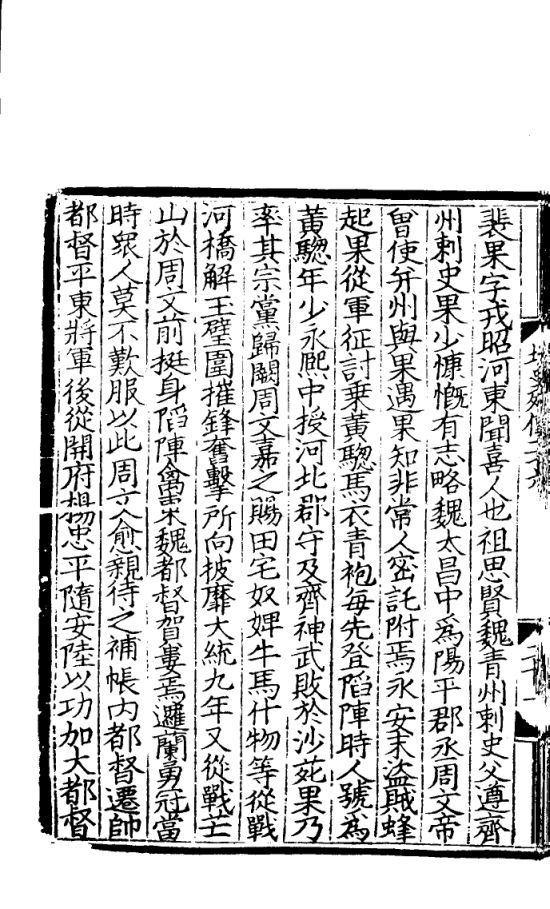 裴果字戎昭河東聞喜人也祖思賢魏青州刺史父遵齊
州刺史果少慷慨有志略魏太昌中爲陽平郡丞周文帝
曾使并州與果遇果知非常人密託附焉永安末盜賊蜂
起果從軍征討乗黄驄馬衣青袍每先登陷陣時人號爲
黄驄年少永熙中授河北郡守及齊神武敗於沙苑果乃
率其宗黨歸闕周文嘉之賜田宅奴婢牛馬什物等從戰
河橋解玉壁圍摧鋒奮擊所向披靡大統九年又從戰芒
山於周文前挺身陷陣禽東魏都督賀婁焉邏蘭勇冠當
時衆人莫不歎服以此周文愈親待之補帳内都督遷帥
都督平東將軍後從開府楊忠平隨安陸以功加大都督